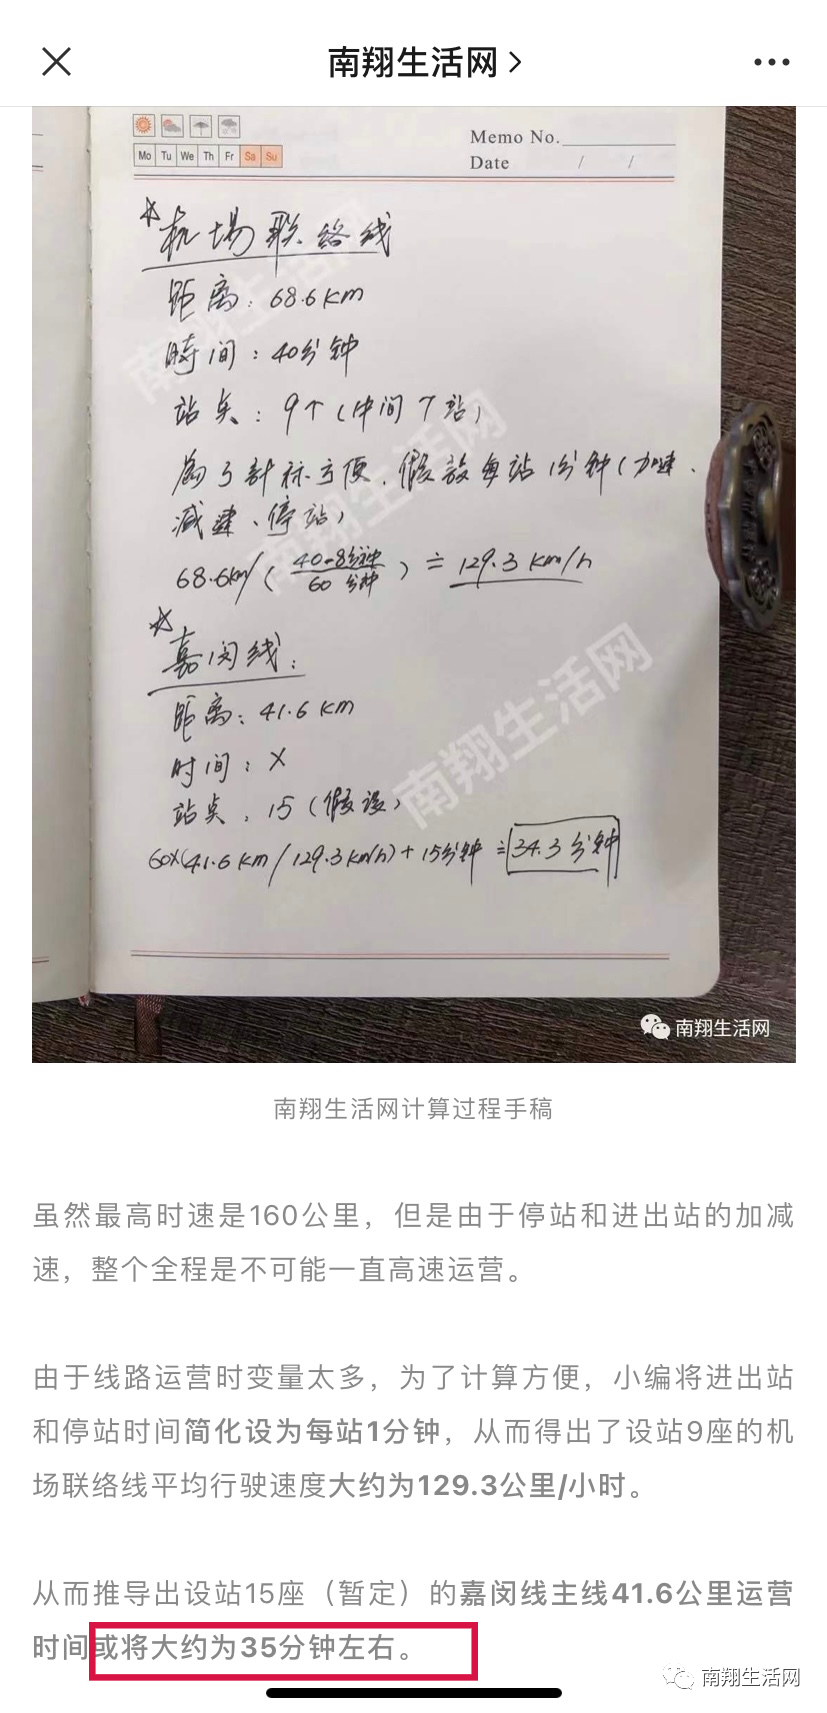 南翔生活网
Memo No.
Mo Tu We Th Fr Sa Su
Date / /
机场联络线
距离：68.6km
时间：40分钟
站点：9个(中间7站)
为了计标方便，假设每站1分钟(加速、
减速、停站)
68.6km/(40-8分钟/60分钟)≒129.3km/h
嘉闵线：
距离：41.6km
时间：X
站点：15(假设)
60×(41.6km/129.3km/h)+15分钟≒34.3分钟
南翔生活网
南翔生活网
南翔生活网
南翔生活网
南翔生活网计算过程手稿
虽然最高时速是160公里，但是由于停站和进出站的加减
速，整个全程是不可能一直高速运营。
由于线路运营时变量太多，为了计算方便，小编将进出站
和停站时间简化设为每站1分钟，从而得出了设站9座的机
场联络线平均行驶速度大约为129.3公里/小时。
从而推导出设站15座（暂定）的嘉闵线主线41.6公里运营
时间或将大约为35分钟左右。
南翔生活网